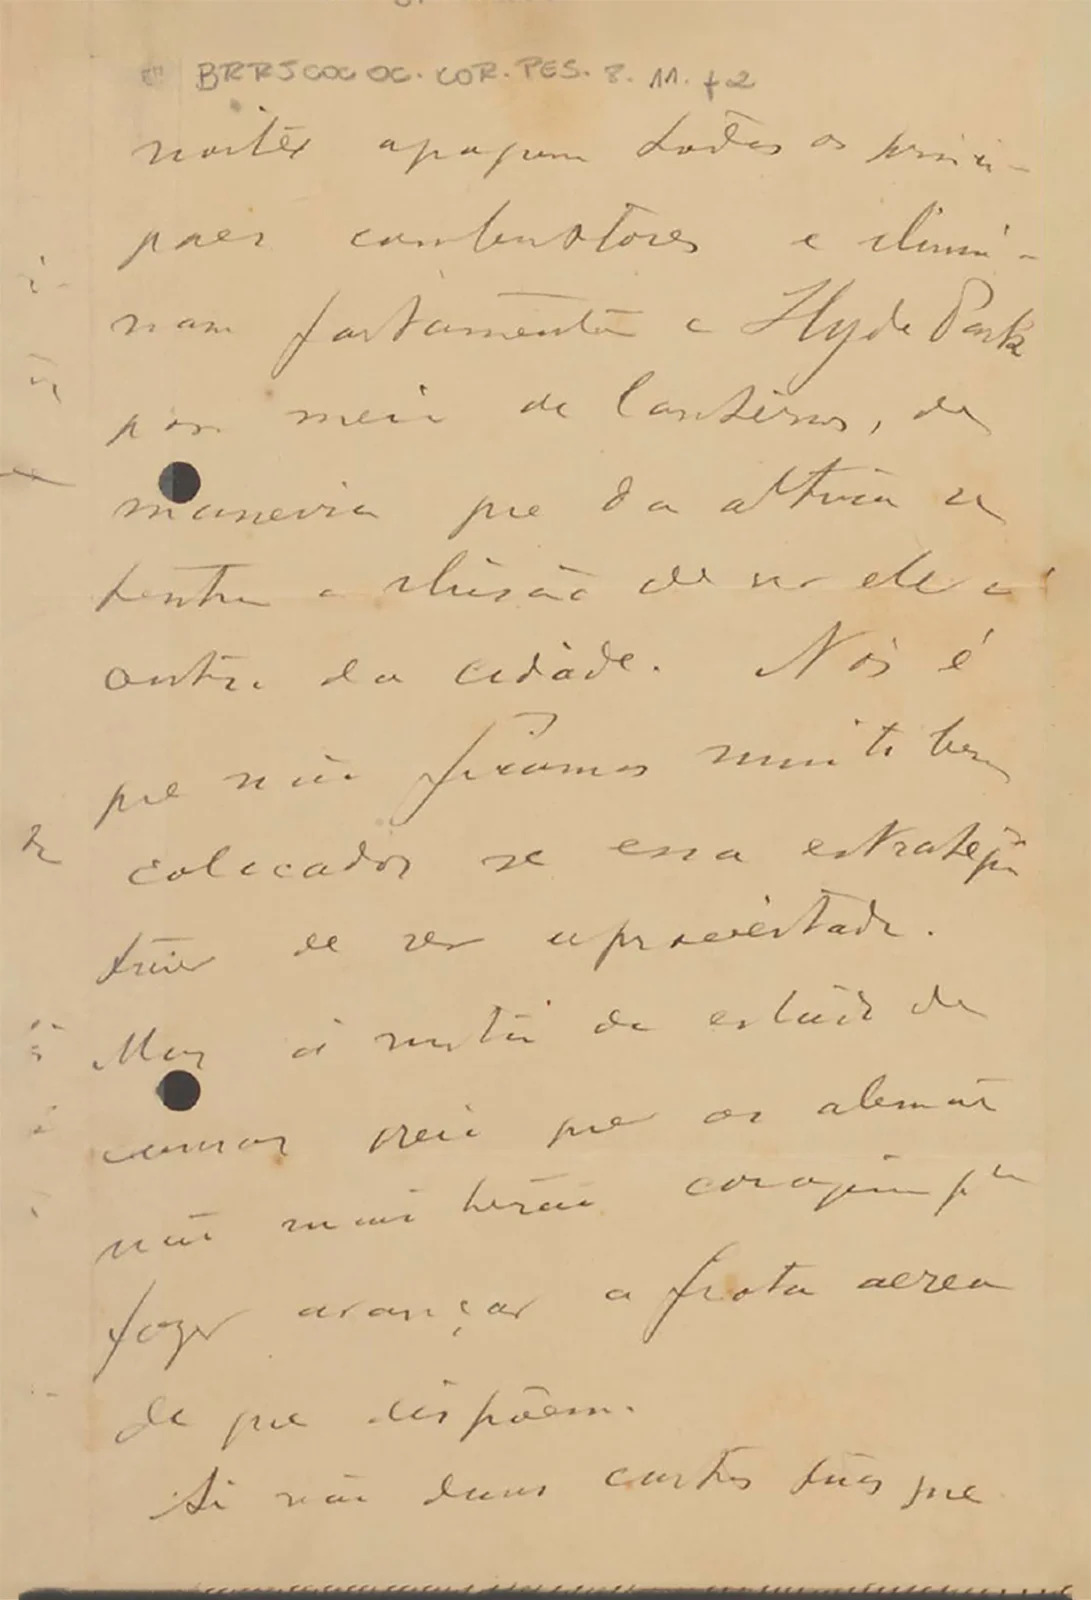 BRRJCOC OC. COR. PES. 8. 11. f2
noites apagam todos os princi-
paes combustores e ilumi-
nam fartamente o Hyde Park
por meio de lanternas, de
maneira que da altura se
tenha a illusão de ser elle o
centro da cidade. Nós é
que não ficamos muito bem
colocados se essa estrategia
tiver de ser aproveitada.
Mas á vista do estado de
cousas creio que os alemães
não mais terão coragem pra
fazer avançar a frota aerea
de que dispõem.
Si não duas cartas tuas que